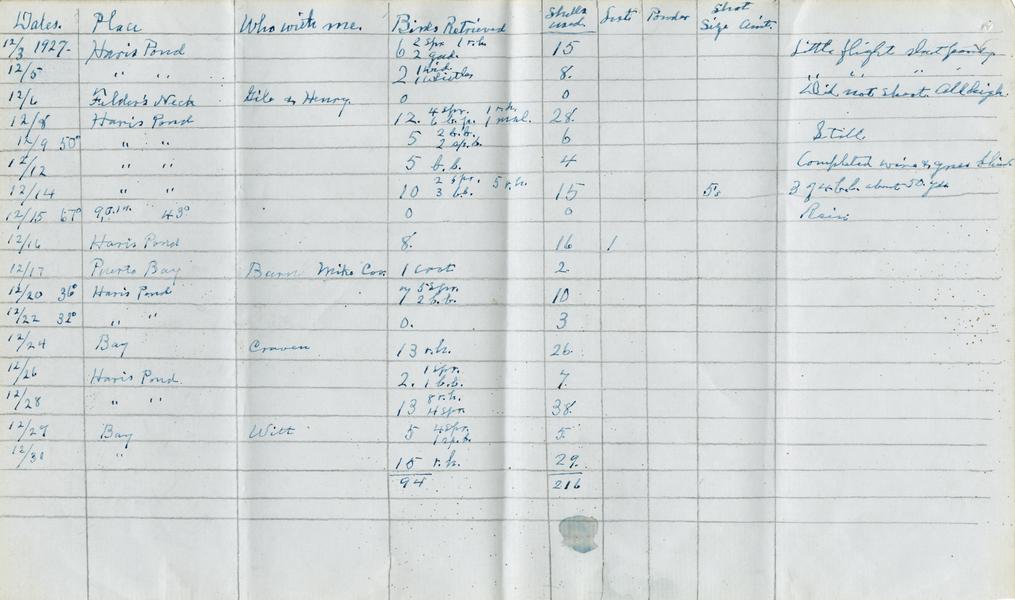 Dates. Place Who with me. Birds Retrieved Shells used. Lost Powder Shot Size Amt.
12/3 1927- Haris Pond 6 2 spr 1 r.h. 2 gad. 15 Little flight shot
12/5 " " 2 1 wid. 1 whistler 8. " " "
12/6 Fielder's Neck & Henry 0 0 Did not shoot. All high.
12/8 Haris Pond 12. 4 spr. 1 r.h. 1 mal. 28.
12/9 50° " " 5 2 b.b. 2 sp.b. 6 Still
12/12 " " 5 b.b. 4 Completed
12/14 " " 10 2 spr. 5 r.h. 3 b.b. 15 5's 3 of 4 b.b. about 50 yds
12/15 67° 9 p.m. 43° 0 0 Rain
12/16 Haris Pond 8. 16 1
12/17 Bay Mike 1 coot 2
12/20 36° Haris Pond 7 5 spr. 2 b.b. 10
12/22 32° " " 0. 3
12/24 Bay Craven 13 r.h. 26
12/26 Haris Pond 2. 1 spr. 1 b.b. 7.
12/28 " " 13 8 r.h. 4 spr. 38.
12/29 Bay Witt 5 4 spr. 1 sp.b. 5.
12/31 " 15 r.h. 29.
94 216